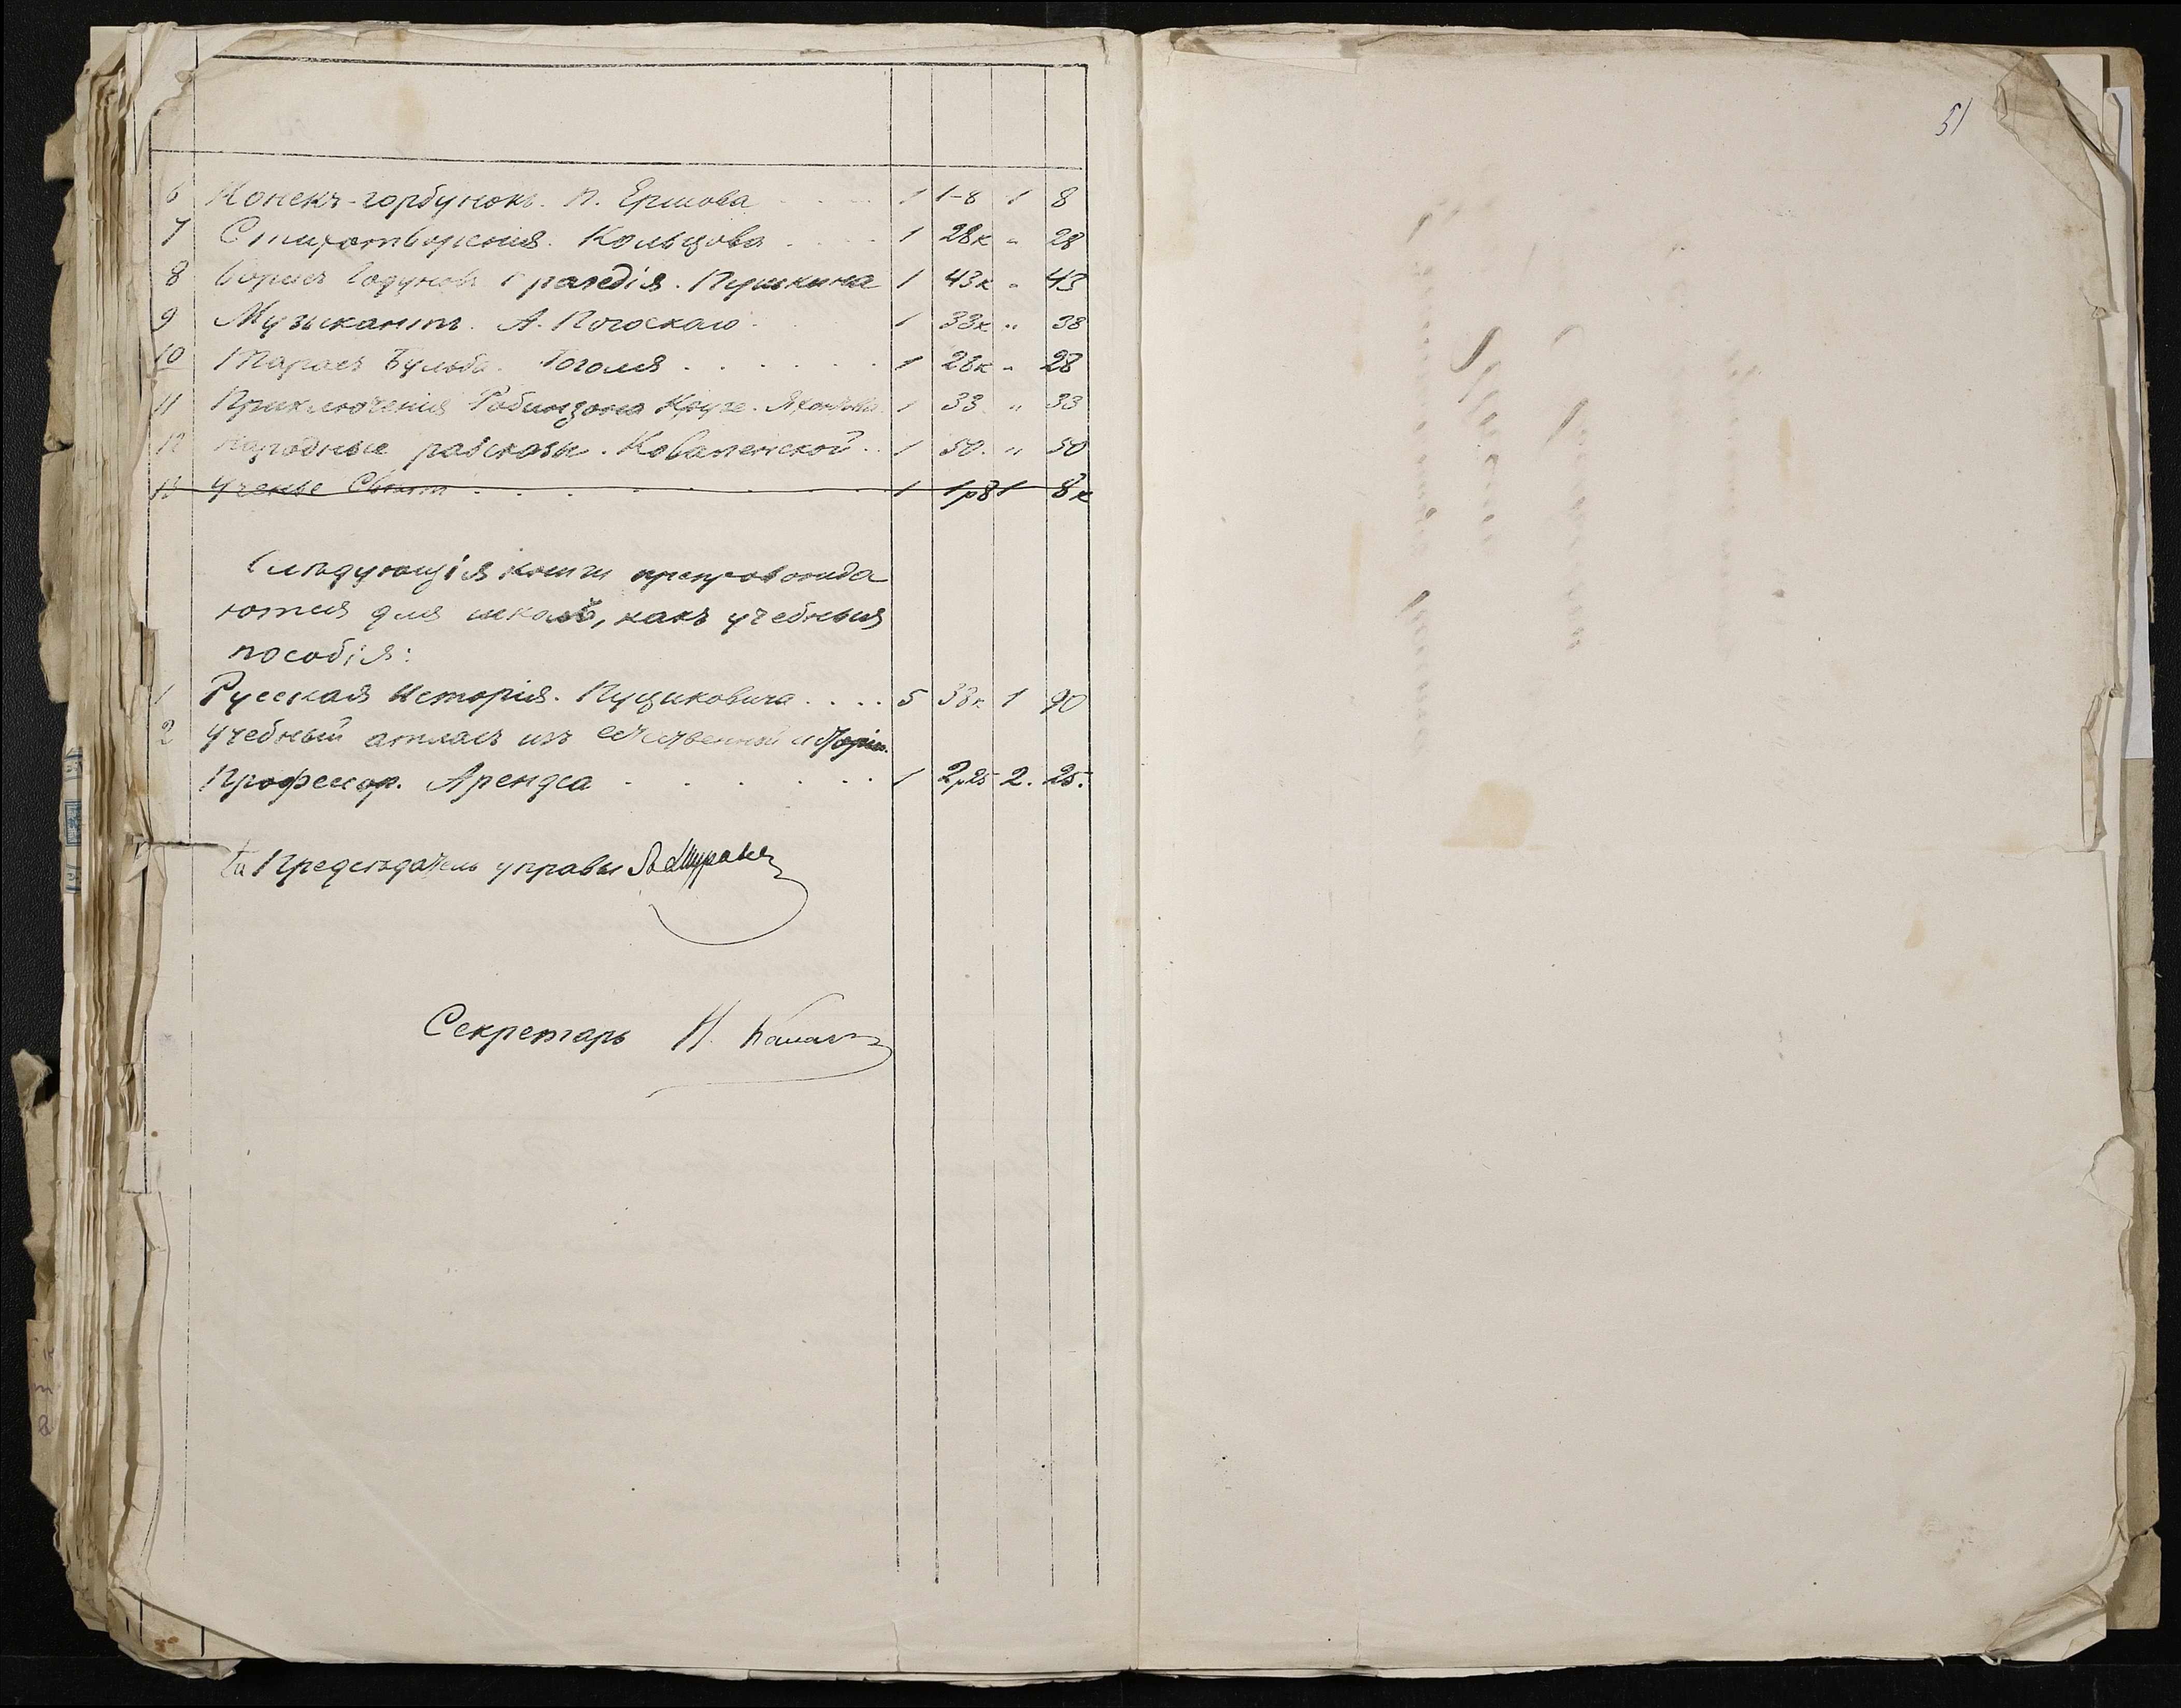 51
6 Конекъ-горбунокъ. П. Ершова 1 1-8 1 8
7 Стихотворения. Кольцова 1 28к „ 28
8 Борисъ Годуновъ Трагедія. Пушкина 1 43к „ 43
9 Музыкантъ. А. Погоскаго 1 38к „ 38
10 Тарасъ Бульба. Гоголя 1 28к „ 28
11 Приключенія Робинзона Крузе. 1 33 „ 33
12 Народные разсказы. Коваленской 1 50. „ 50
13 Ученье Свѣтъ 1 1р8 1 8к
Слѣдующія книги препровожда
ются для школъ, какъ учебныя
пособія:
1 Русская Исторія. Пуциковича 5 38к 1 90
2 Учебный атласъ изъ естественной исторіи.
Профессор. Арендса 1 2р25 2. 25.
За Предсѣдатель управы
Секретарь Н.